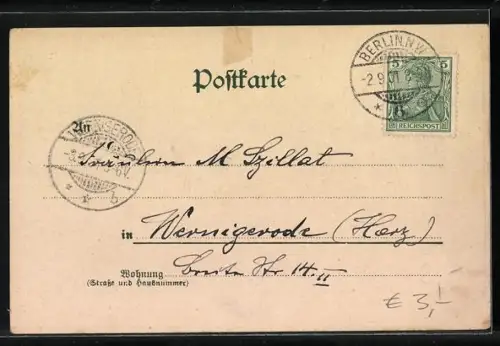 BERLIN.N.W.
-2.9.01
5 5
REICHSPOST
Postkarte
An
WERNIGERODE
Fräulein M Szillat
in Wernigerode (Harz)
Wohnung Breite Str 14 II
(Straße und Hausnummer)
€ 3,-